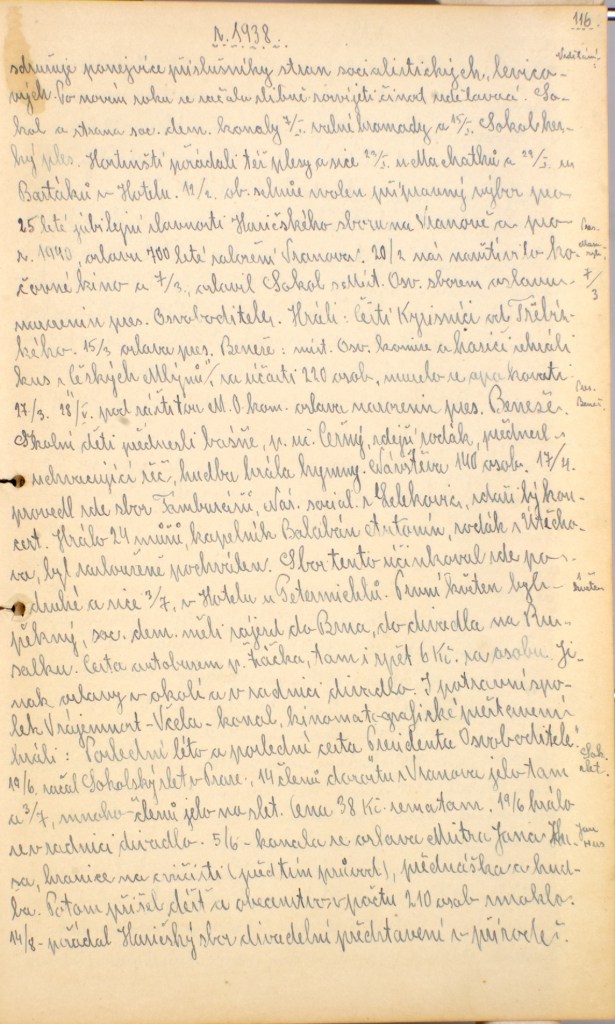 116.
r. 1938.
sdružuje ponejvíce příslušníky stran socialistických, levico-
vých. Po novém roku se začala slibně rozvíjeti činost vzdělávací. So-
kol a strana soc. dem. konaly 7/I. valné hromady a 15/I. Sokol hez-
ký ples. Hostinští pořádali též plesy a sice 22/I. u Machatků a 29/I. u
Bartáků v Hotelu. 12/2. ob. schůze zvolen přípravný výbor pro
25 leté jubilejní slavnosti Hasičského sboru na Vranově a pro
r. 1940, oslavu 700 leté založení Vranova. 20/2 nás navštívilo ko-
čovné kino a 7/3., oslavil Sokol s Míst. Osv. sborem oslavu
narozenin pres. Osvoboditele. Hráli: Čeští Kyrisníci od Třebíz-
kého. 15/3 oslava pres. Beneše: míst. Osv. komise a hasiči sehráli
kus z "Českých Mlýnů", za účasti 220 osob, muselo se opakovati
27/3. 28/5. pod záštitou M. O. kom. oslava narozenin pres. Beneše.
Školní děti přednesli básně, p. uč. Černý, zdejší rodák, přednesl
uchvacující řeč, hudba hrála hymny. Návštěva 140 osob. 17/4.
provedl zde sbor Tamburášů, Nár. social. z Lelekovic, zdařilý kon-
cert. Hrálo 24 mužů, kapelník Balabán Antonín, rodák z Útěcho-
va, byl zaslouženě pochválen. Sbor tento účinkoval zde po-
druhé a sice 3/7, v Hotelu u Petermichlů. První květen byl
pěkný, soc. dem. měli zájezd do Brna, do divadla na Ru-
salku. Cesta autobusem p. Žáčka, tam i zpět 6 Kč. za osobu. Ji-
nak oslavy v okolí a v radnici divadlo. I potravní spo-
lek Vzájemnost-Včela-konal, kinematografické představení
hráli: "Poslední léto a poslední cesta Presidenta Osvoboditele"
19/6, začal Sokolský slet v Praze, 14 členů dorostu z Vranova jelo tam
a 3/7, mnoho členů jelo na slet. Cena 38 Kč. sem a tam. 19/6 hrálo
se v radnici divadlo. 5/6 - konala se oslava Mistra Jana Hu-
sa, hranice na cvičišti (předtím průvod), přednáška a hud-
ba. Potom přišel déšť a obecenstvo v počtu 210 osob zmoklo.
14/8 - pořádal Hasičský sbor divadelní představení v přírodě.
Pres.
7/3
Pres.
Beneš.
Květen
Sok.
slet.
Jan
Hus